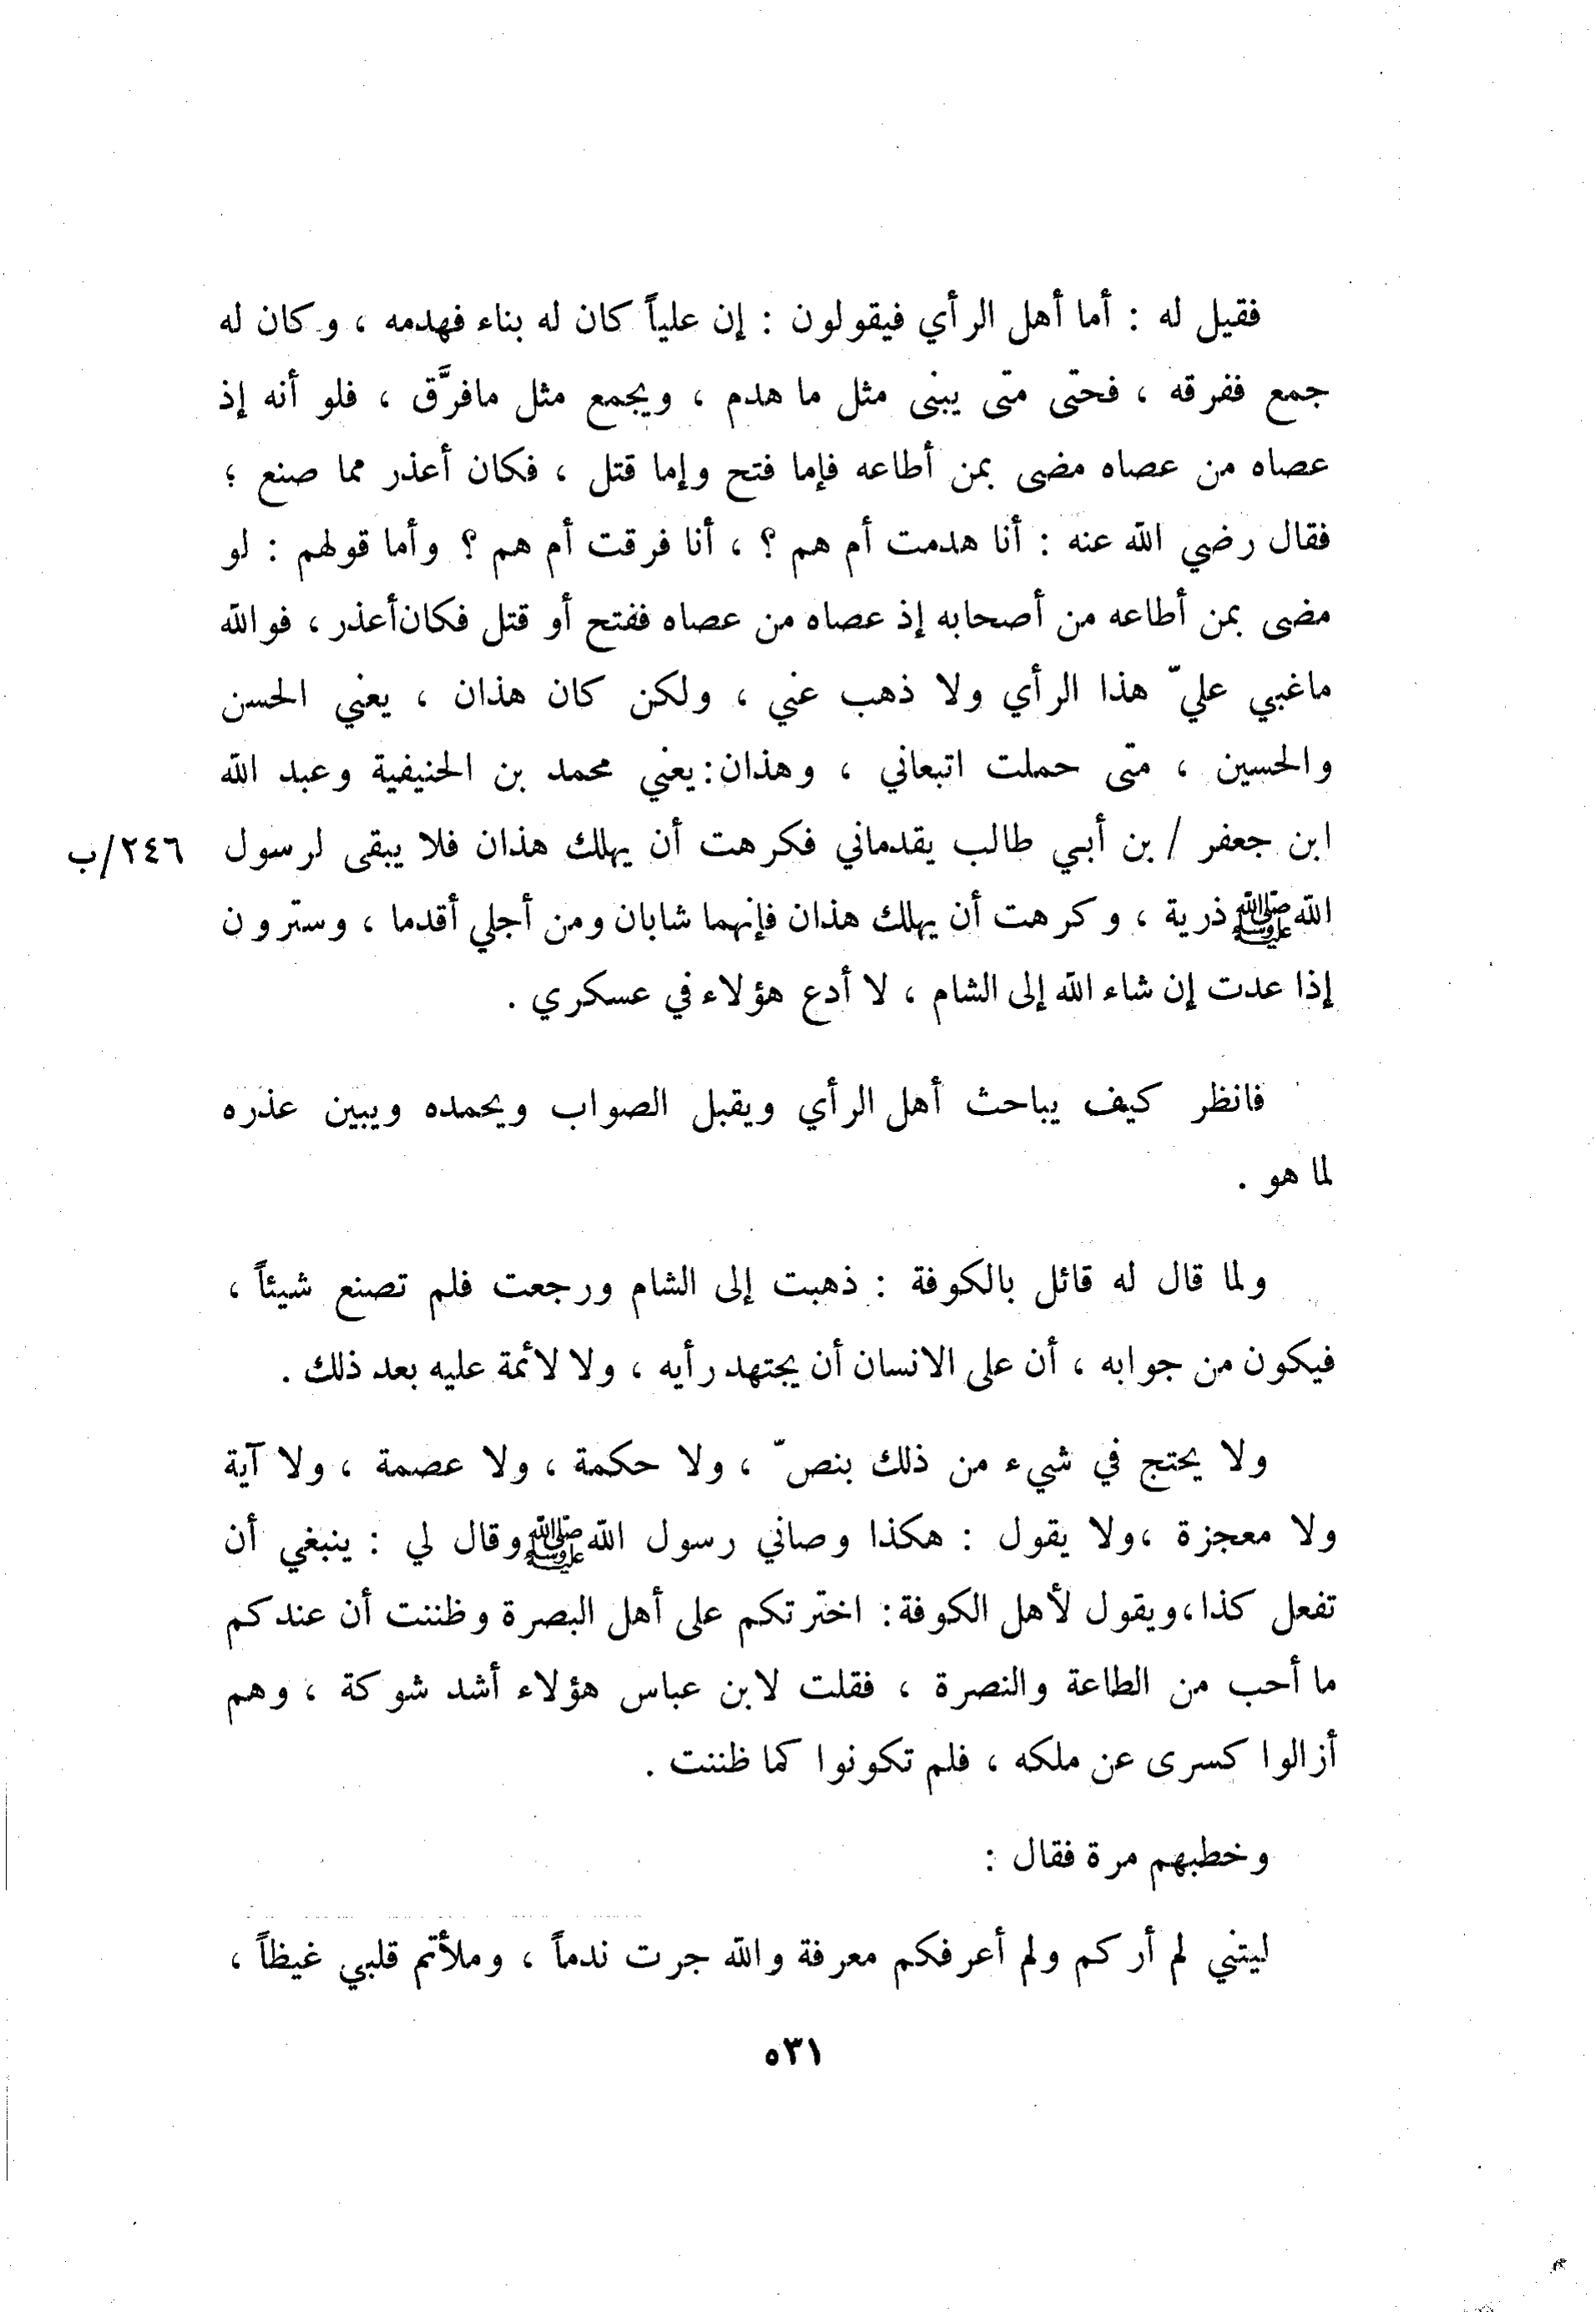 فقيل له : أما أهل الرأي فيقولون : إن علياً كان له بناء فهدمه ، وكان له
جمع ففرقه ، فحتى متى يبنى مثل ما هدم ، ويجمع مثل مافرَّق ، فلو أنه إذ
عصاه من عصاه مضى بمن أطاعه فإما فتح وإما قتل ، فكان أعذر مما صنع ؛
فقال رضي الله عنه : أنا هدمت أم هم ؟ ، أنا فرقت أم هم ؟ وأما قولهم : لو
مضى بمن أطاعه من أصحابه إذ عصاه من عصاه ففتح أو قتل فكان أعذر ، فوالله
ماغبي عليّ هذا الرأي ولا ذهب عني ، ولكن كان هذان ، يعني الحسن
والحسين ، متى حملت اتبعاني ، وهذان : يعني محمد بن الحنيفية وعبد الله
ابن جعفر / بن أبي طالب يقدماني فكرهت أن يهلك هذان فلا يبقى لرسول ٢٤٦/ب
الله ﷺ ذرية ، وكرهت أن يهلك هذان فإنهما شابان ومن أجلي أقدما ، وسترون
إذا عدت إن شاء الله إلى الشام ، لا أدع هؤلاء في عسكري .
فانظر كيف يباحث أهل الرأي ويقبل الصواب ويحمده ويبين عذره
لما هو .
ولما قال له قائل بالكوفة : ذهبت إلى الشام ورجعت فلم تصنع شيئاً ،
فيكون من جوابه ، أن على الانسان أن يجتهد رأيه ، ولا لائمة عليه بعد ذلك .
ولا يحتج في شيء من ذلك بنصّ ، ولا حكمة ، ولا عصمة ، ولا آية
ولا معجزة ، ولا يقول : هكذا وصاني رسول الله ﷺ وقال لي : ينبغي أن
تفعل كذا ، ويقول لأهل الكوفة : اخترتكم على أهل البصرة وظننت أن عندكم
ما أحب من الطاعة والنصرة ، فقلت لابن عباس هؤلاء أشد شوكة ، وهم
أزالوا كسرى عن ملكه ، فلم تكونوا كما ظننت .
وخطبهم مرة فقال :
ليتني لم أركم ولم أعرفكم معرفة والله جرت ندماً ، وملأتم قلبي غيظاً ،
٥٣١